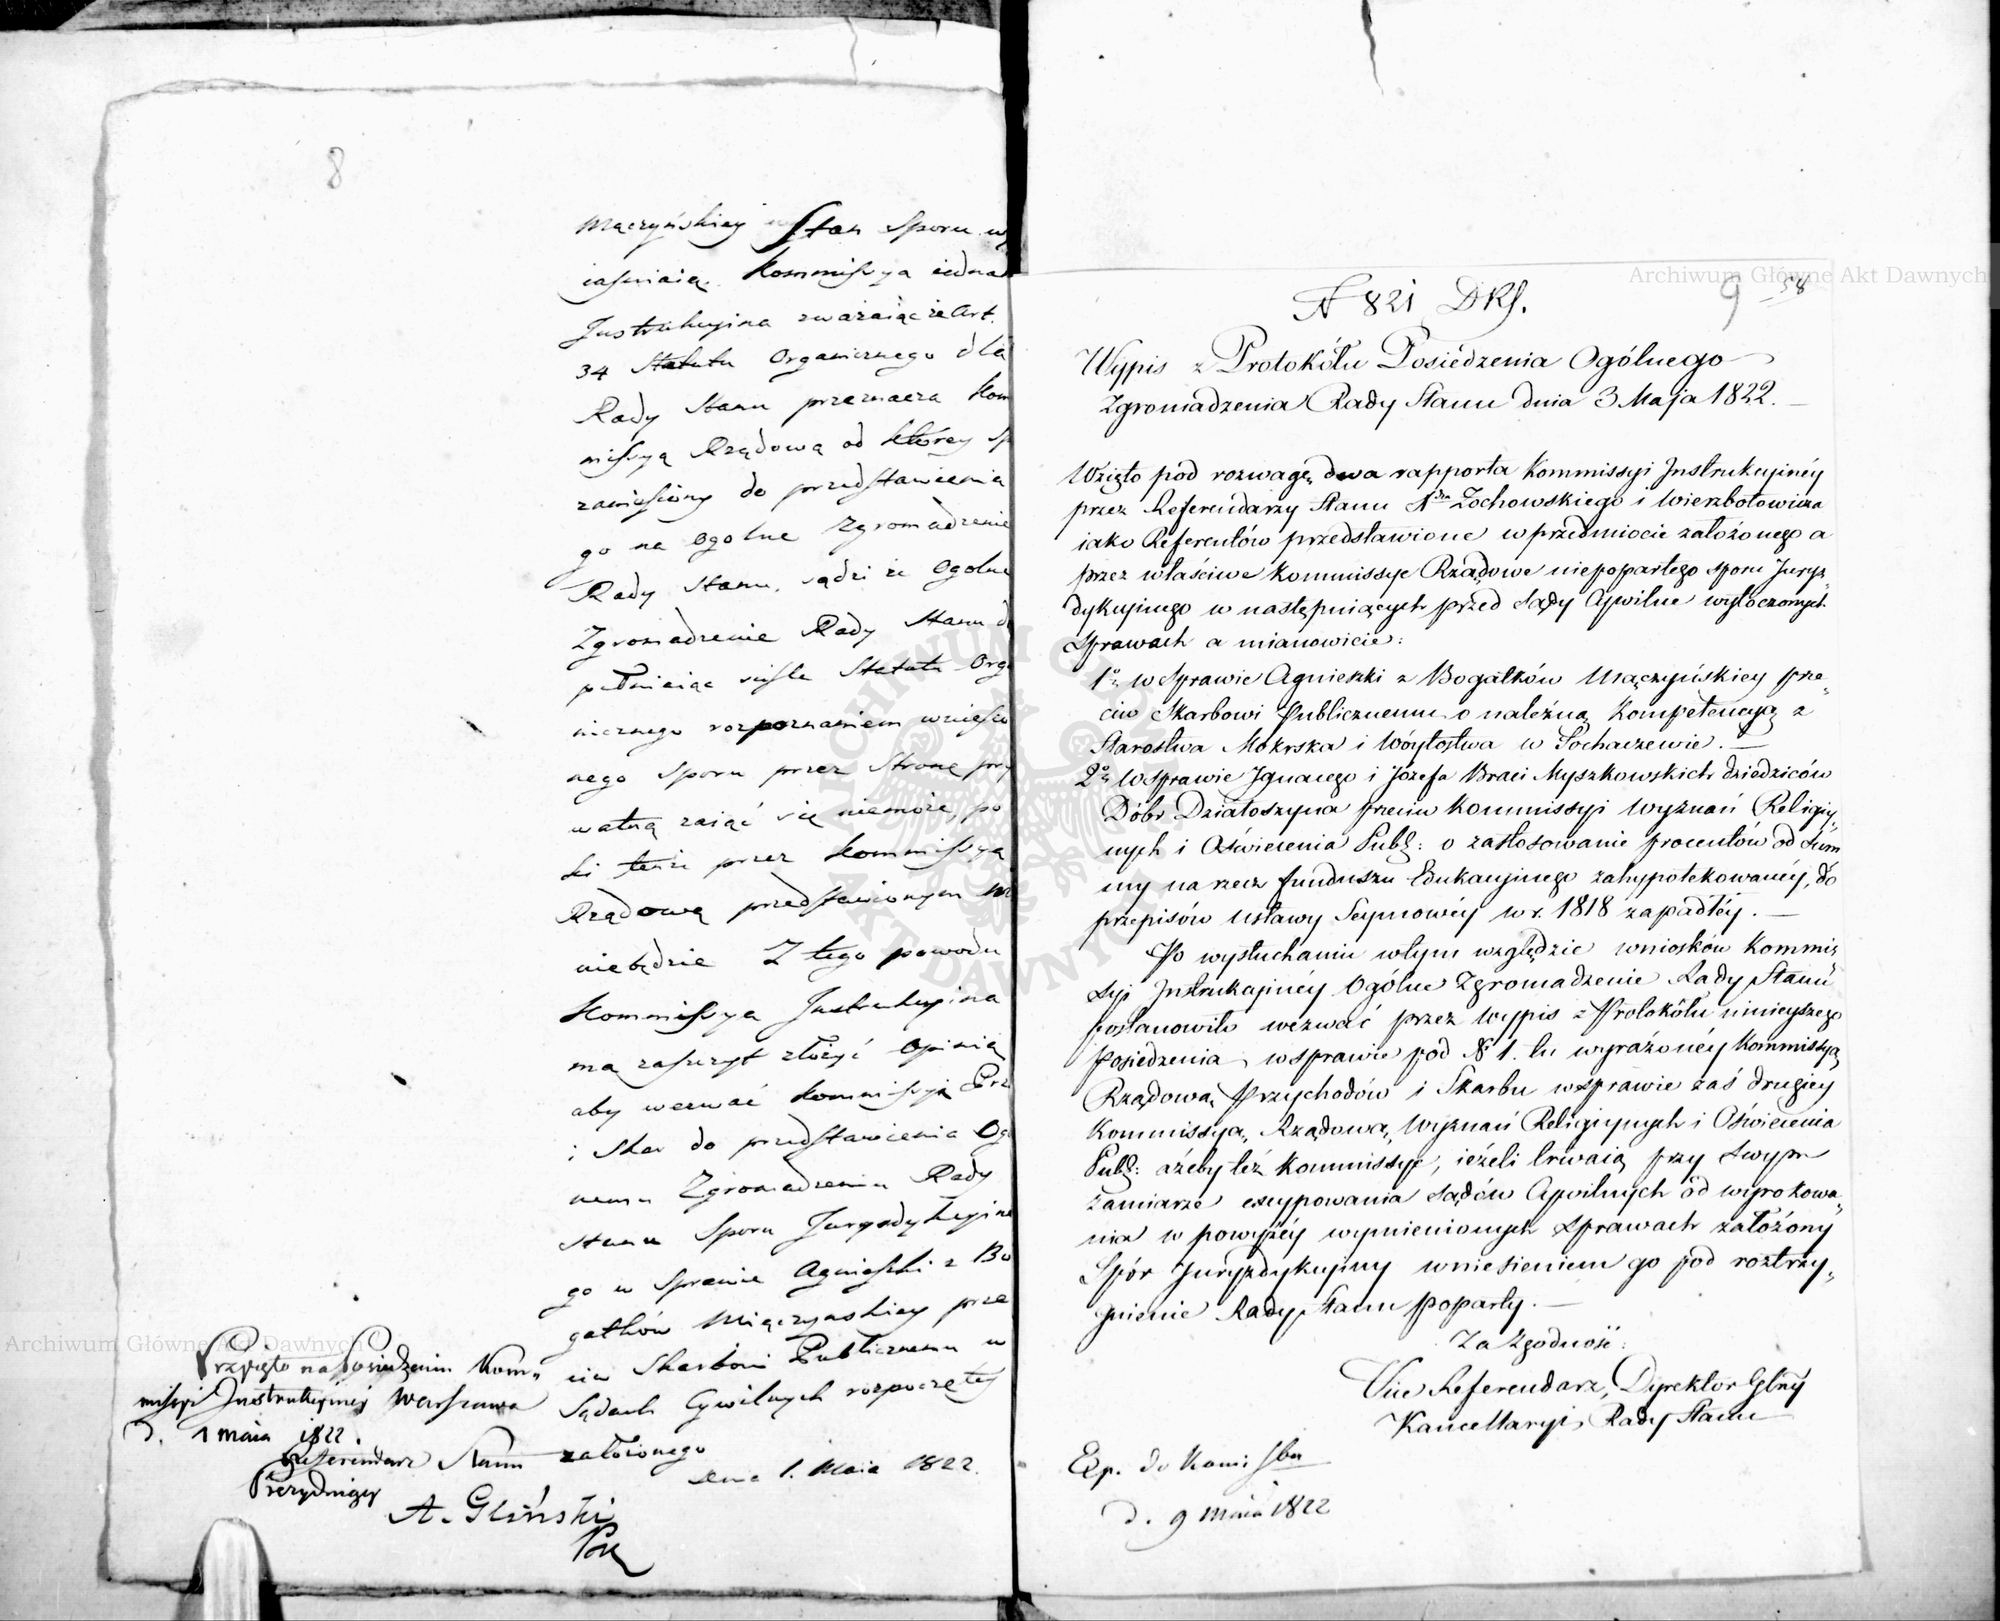 8
Mączyńskiey Stan Sporu wy
iaśniaią. Kommissya iedna
Instrukcyina zważaiąc że Art.
34 Statutu Organicznego dla
Rady Stanu przeznacza Kom
missyą Rządową od którey Sp
zaniesiony do przedstawienia
go na Ogolne Zgromadzenie
Rady Stanu, sądzi że Ogolne
Zgromadzenie Rady Stanu d
pełniaiąc ściśle Statutu Orga
nicznego rozpoznaniem wniesio
nego Sporu przez Stronę pry
watną zaiąć się niemoże, po
ki tenże przez Kommissyą
Rządową przedstawionym
niebędzie Z tego powodu
Kommissya Instrukcyina
ma zaszczyt złożyć Opinią
aby wezwać Kommissyą Prz
i Skar do przedstawienia Ogo
nemu Zgromadzeniu Rady
Stanu Sporu Jurysdykcyine
go w Sprawie Agnieszki z Bo
gatków Mączynskiey prze
ciw Skarbowi Publicznemu w
Sądach Cywilnych rozpoczętey
założonego
dnia 1. Maia 1822.
Przyięto na Posiedzeniu Kom„
missyi Instrukcyinej Warszawa
d. 1 maia 1822.
Referendarz Stanu
Prezyduiący
A. Gliński
Archiwum Główne Akt Dawnych
Archiwum Główne Akt Dawnych
ARCHIWUM GŁÓWNE AKT DAWNYCH
N 821 DRS.
9 58
Wypis z Protokółu Posiédzenia Ogólnego
Zgromadzenia Rady Stanu dnia 3 Maja 1822. —
Wzięto pod rozwagę dwa rapporta Kommissyi Instrukcyinéy
przez Referendarzy Stanu Żochowskiego i Wierzbołowicza
iako Referentów przedstawione w przedmiocie założonego a
przez właściwe Kommissye Rządowe niepopartego sporu Juryz„
dykcyinego w następuiących przed Sądy Cywilne wytoczonych
Sprawach a mianowicie:
1o w Sprawie Agnieszki z Bogatków Mączyńskiey prze„
ciw Skarbowi Publicznemu o należną Kompetencyą z
Starostwa Mokrska i Wóytostwa w Sochaczewie. —
2o w Sprawie Ignacego i Józefa Braci Myszkowskich dziedziców
Dóbr Działoszyna przeciw Kommissyi Wyznań Religiy„
nych i Oświecenia Publ: o zastosowanie procentów od Sum
my na rzecz funduszu Edukacyinego zahypotekowanéy, do
przepisów Ustawy Seymowéy w r. 1818 zapadłéy. —
Po wysłuchaniu w tym względzie wniosków Kommis„
syi Instrukcyinéy Ogólne Zgromadzenie Rady Stanu
postanowiło wezwać przez Wypis z Protokółu ninieyszego
Posiedzenia w sprawie pod N 1. tu wyrażonéy Kommissyą
Rządową Przychodów i Skarbu w sprawie zaś drugiey
Kommissyą Rządową Wyznań Religiynych i Oświecenia
Publ: ażeby też Kommissye, ieżeli trwaią przy swym
zamiarze excypowania Sądów Cywilnych od wyrokowa„
nia w powyżéy wymienionych Sprawach założony
Spór Juryzdykcyiny wniesieniem go pod roztrzy„
gnienie Rady Stanu poparły. —
Za Zgodność:
Vice Referendarz, Dyrektor Glny
Kancellaryi Rady Stanu
Exp. do Komis: Sbu
d. 9 maia 1822